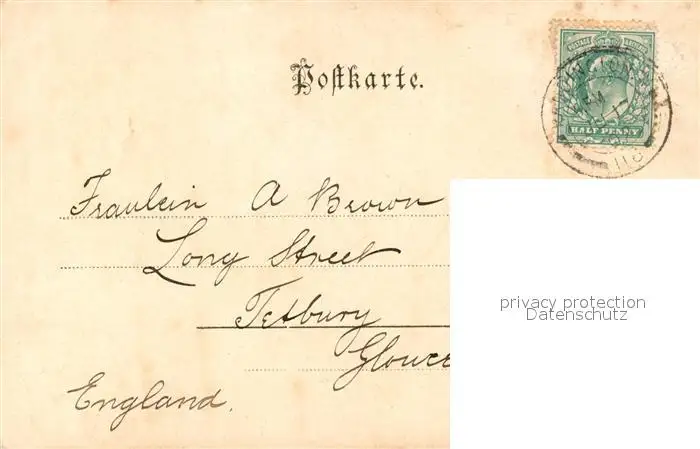 Postkarte.
POSTAGE REVENUE
HALF PENNY
Fraulein A Brown
Long Street
Tetbury
Glouce
England.
privacy protection
Datenschutz